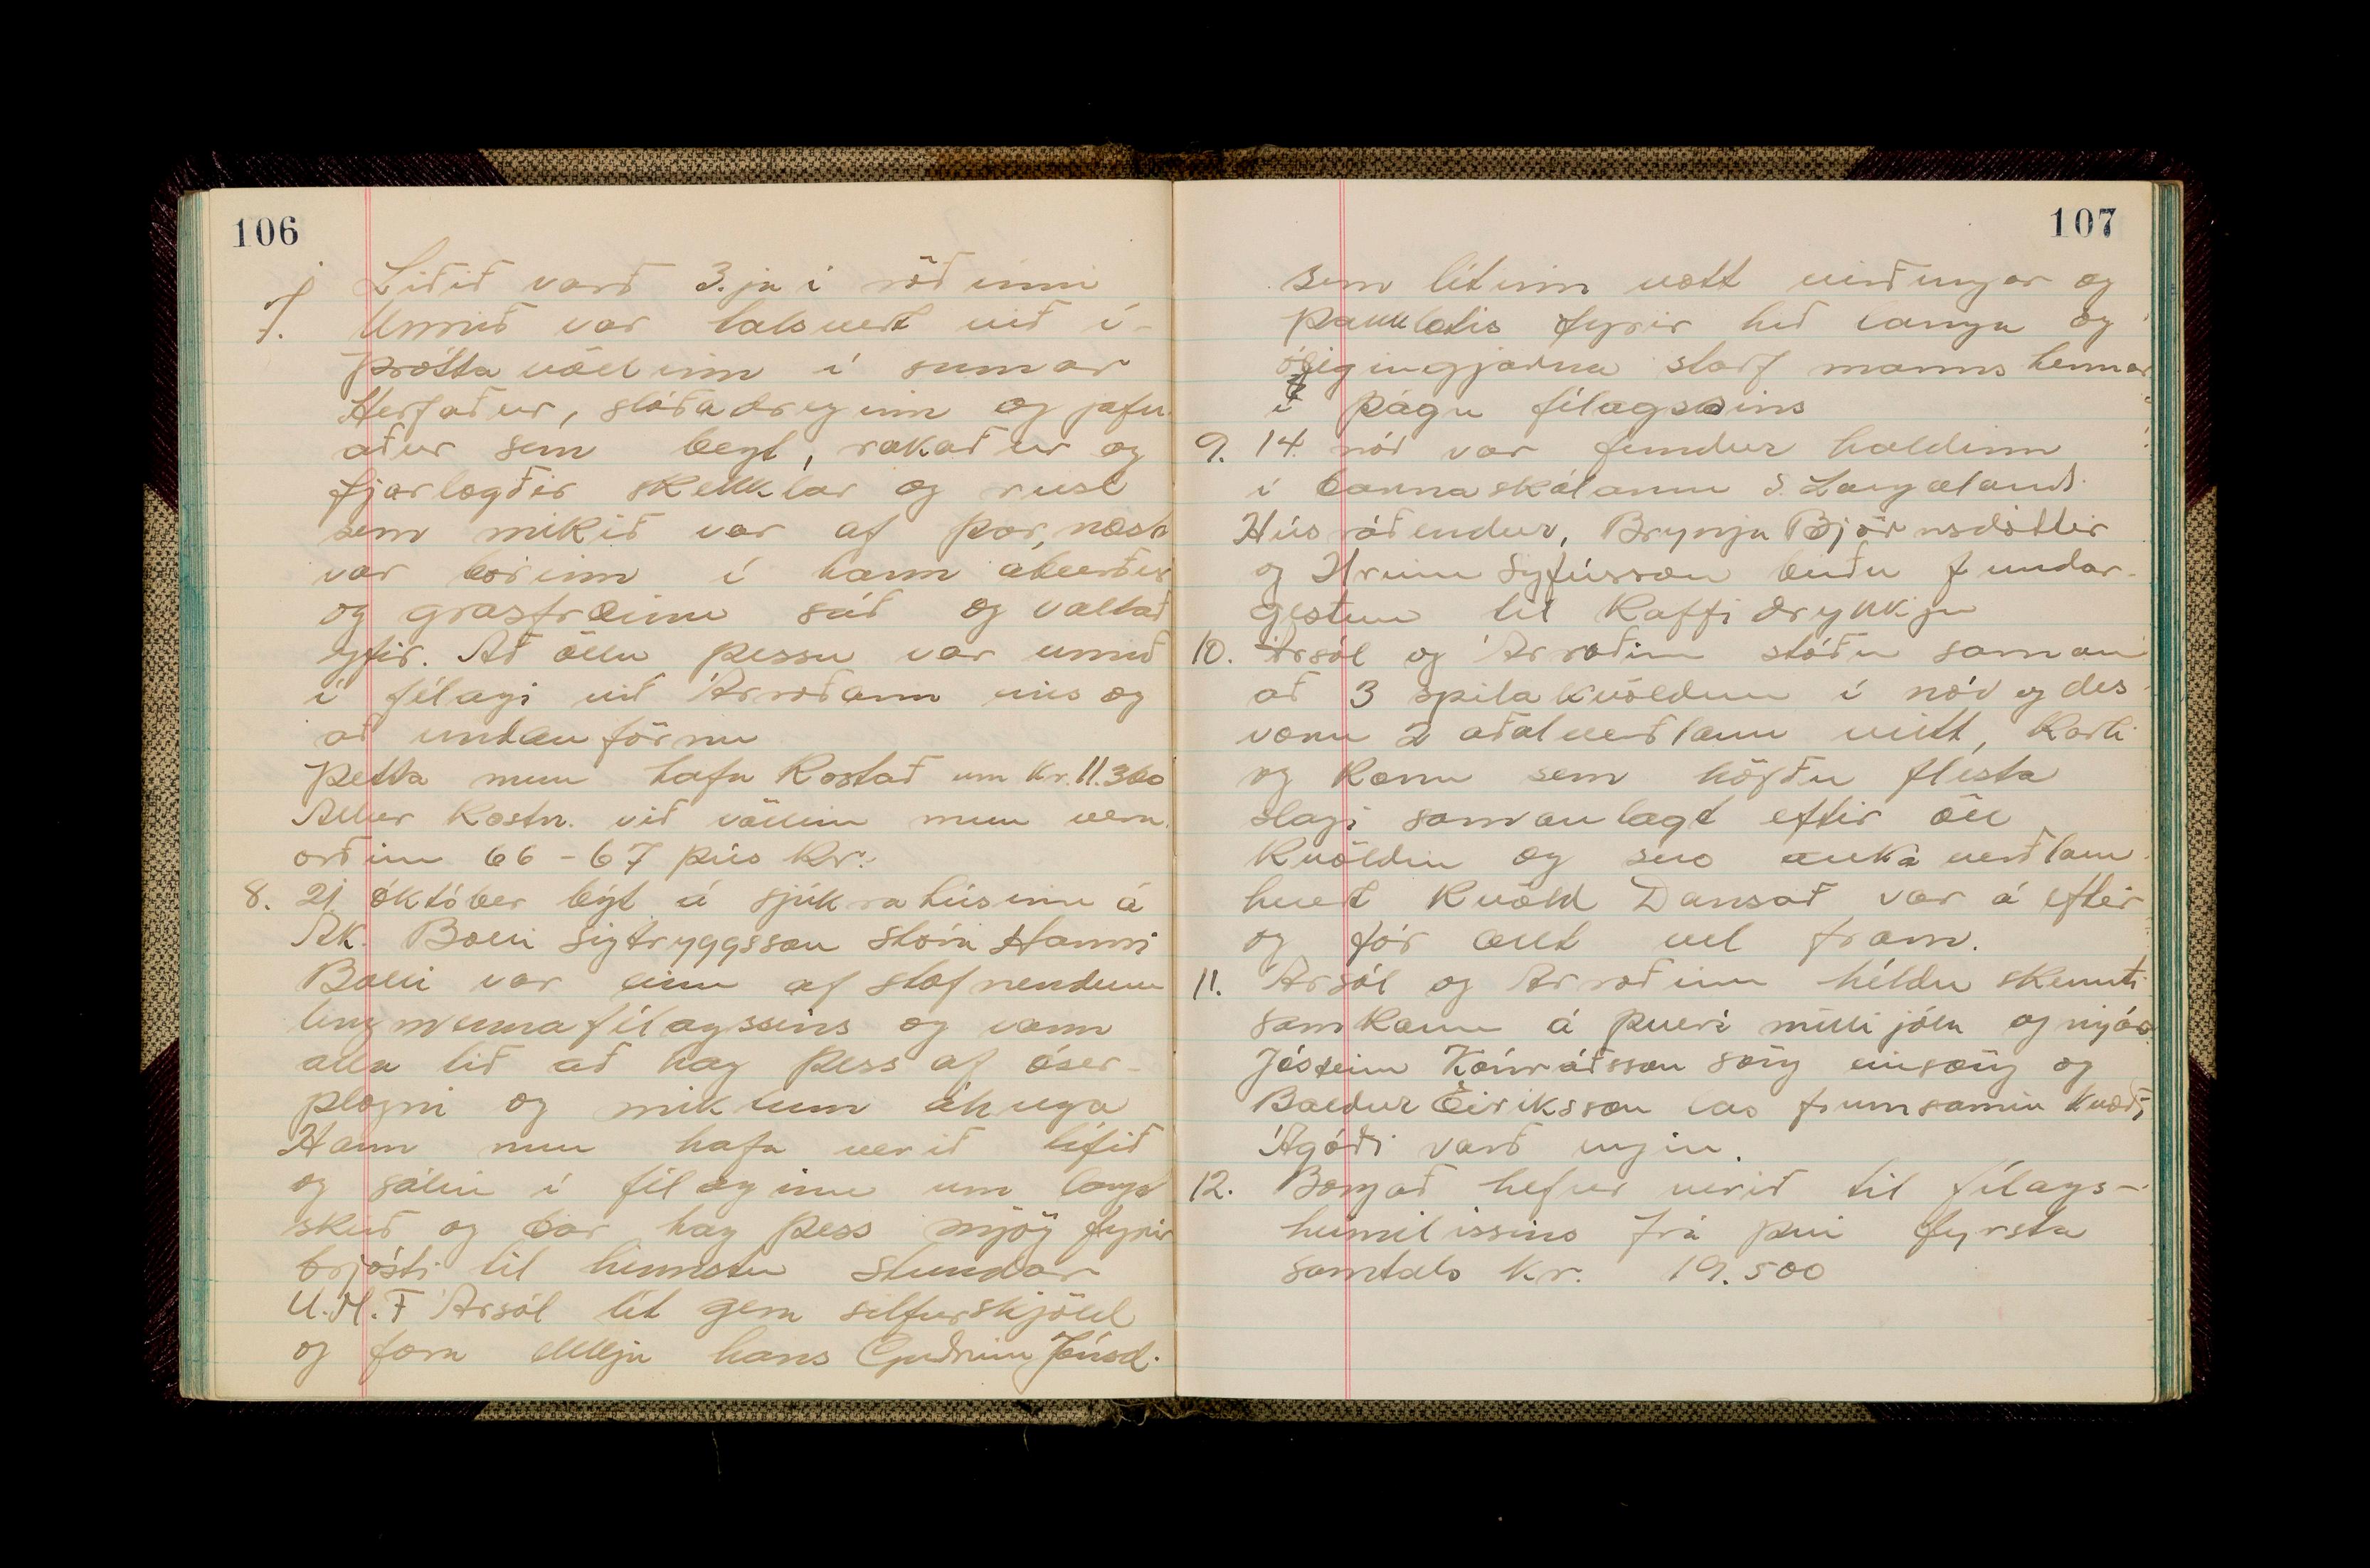 106
Liðið varð 3.ja í röðinni
7. Unnið var talsvert við í-
þróttavöllinn í sumar
Herfaður, slóðadreginn og jafn
aður sem begt, rakaður og
fjarlægðir skekklar og rusl
sem mikið var af þar, næst
var borinn í hann áburður
og grasfræinu sáð og valtað
yfir. Að öllu þessu var unnið
í félagi við Árroðann eins og
að undanförnu
Þetta mun hafa kostað um kr. 11.360
Allur kostn. við völlinn mun vera
orðinn 66-67 þús kr.
8. 21 október lést á sjúkrahúsinu á
Ak. Bolli Sigtryggsson Stóra Hamri
Bolli var einn af stofnendum
ungmennafélagssins og vann
alla tíð að hag þess af ósér-
plægni og miklum áhuga
Hann mun hafa verið lífið
og sálin í félaginu um langt
skeið og bar hag þess mjög fyrir
brjósti til hinnstu stundar
U.M.F Ársól lét gera silfurskjöld
og færa ekkju hans Guðrúnu Jónsd.
107
sem lítinn vott virðingar og
þakklætis fyrir hið langa og
óeigingjarna starf manns hennar
í þágu félagssins
9. 14. nóv var fundur haldinn
í barnaskólanum S. Laugalandi.
Húsráðendur, Brynja Björnsdóttir
og Hreinn buðu fundar-
gestum til kaffidrykkju
10. Ársól og Árroðinn stóðu saman
að 3 spilakvöldum í nóv og des
voru 2 aðalverðlaun veitt, karli
og konu sem höfðu flesta
slagi samanlagt eftir öll
kvöldin og svo auka verðlaun
hvert kvöld Dansað var á eftir
og fór allt vel fram.
11. Ársól og Árroðinn héldu skemmti
samkomu á Þverá milli jóla og nýárs
Jósteinn Konráðsson söng einsöng og
Baldur Eiríksson las frumsamin kvæði
Ágóði varð engin.
12. Borgað hefur verið til félags-
heimilissins frá því fyrsta
samtals kr. 19.500